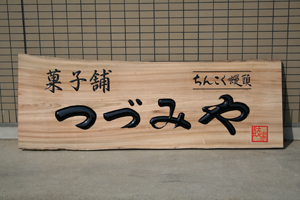 菓子舗
ちんこく饅頭
つづみや